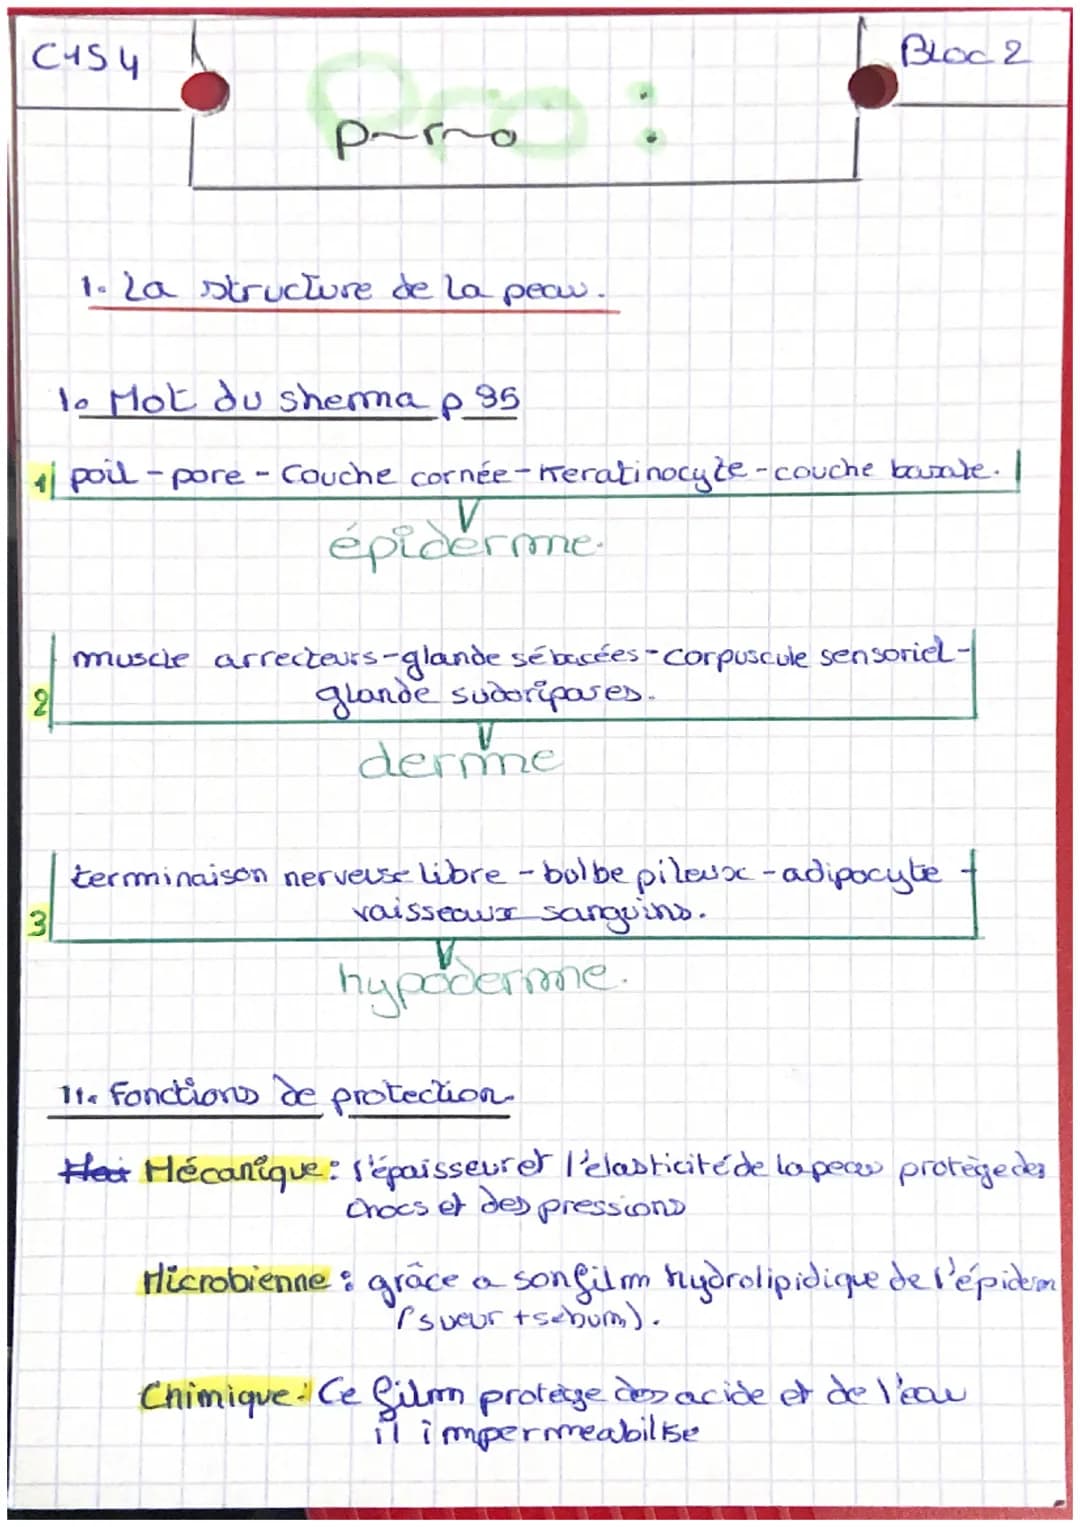 C4S4
Bloc 2
Pro :
p~r~o
1. La structure de la peau.
1. Mot du shema p 95
1 poil - pore - Couche cornée - Keratinocyte - couche basale.
épiderme.
muscle arrecteurs - glande sébacées - corpuscule sensoriel -
2 glande sudoripares.
derme
terminaison nerveuse libre - bulbe pileux - adipocyte -
3 vaisseaux sanguins.
hypoderme.
11. Fonctions de protection.
Mécanique : l'épaisseur et l'élasticité de la peau protège des
chocs et des pressions
Microbienne : grâce a son film hydrolipidique de l'épiderm
(sueur + sebum).
Chimique : Ce film protège des acide et de l'eau
il impermeabilise